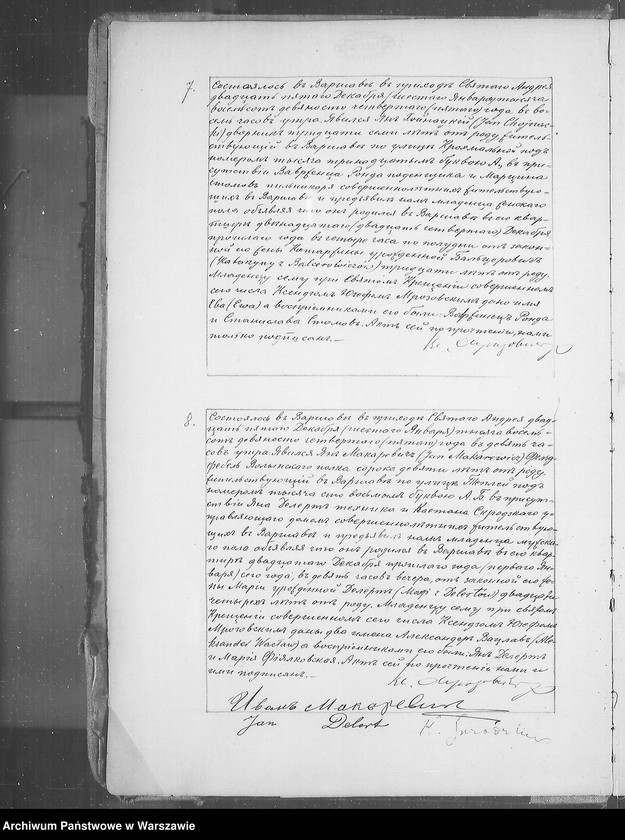 7.
Состоялось въ Варшавѣ въ приходѣ Святаго Андрея
двадцать пятаго Декабря/шестаго Января/тысяча
восемьсотъ девяносто четвертаго/пятаго/года въ во-
семь часовъ утра. Явился Янъ Хойнацкій/Jan Chojnac-
ki/дворникъ тридцати семи лѣтъ отъ роду жительс-
твующій въ Варшавѣ по улицѣ Крохмальной подъ
номеромъ тысяча тринадцатымъ буквою А, въ при-
сутствіи Ваврженца Ронда поденщика и Марцина
Столовъ пильникоря совершеннолѣтнихъ жительствую-
щихъ въ Варшавѣ и предъявилъ намъ младенца женскаго
пола объявляя что она родился въ Варшавѣ въ его квар-
тирѣ двѣнадцатаго/двадцать четвертаго/Декабря
прошлаго года въ четыре часа по полудни отъ закон-
ной его жены Катаржины урожденной Бальцеровичъ
/Katarzyny z Balcerowiczów/тридцати лѣтъ отъ роду.
Младенцу сему при Святомъ Крещеніи совершенномъ
сего числа Ксендзомъ Юзефомъ Мрозовскимъ дано имя
Ева/Ewa/а воспріемниками его были: Ваврженецъ Ронда
и Станислава Столовъ. Актъ сей по прочтеніи, нами
только подписанъ.—
8.
Состоялось въ Варшавѣ въ приходѣ Святаго Андрея двад-
цать пятаго Декабря/шестаго Января/тысяча восемь-
сотъ девяносто четвертаго/пятаго/года въ девять ча-
совъ утра. Явился Янъ Макаревичъ/Jan Makarewicz/Фельд-
фебель Волынскаго полка сорока девяти лѣтъ отъ роду
жительствующій въ Варшавѣ по улицѣ Теплой подъ
номеромъ тысяча сто восьмомъ буквою А. Б. въ присут-
ствіи Яна Делерта техника и Каетана Скродзкаго у-
правляющаго домомъ совершеннолѣтнихъ жительствую-
щихъ въ Варшавѣ и предъявилъ намъ младенца мужска-
го пола объявляя что онъ родился въ Варшавѣ въ его квар-
тирѣ двадцатаго Декабря прошлаго года/перваго Ян-
варя/сего года, въ девять часовъ вечера, отъ законной его же-
ны Маріи урожденной Делертъ двадцати
четырехъ лѣтъ отъ роду. Младенцу сему при святомъ
Крещеніи совершенномъ сего числа Ксендзомъ Юзефомъ
Мрозовскимъ даны два имена Александеръ Вацлавъ/Ale-
ksander Wacław/а воспріемниками его были: Янъ Делертъ
и Марія Фіялковская. Актъ сей по прочтеніи нами и
ими подписанъ.—
Иванъ Макаревичъ
Jan Delert
Archiwum Państwowe w Warszawie